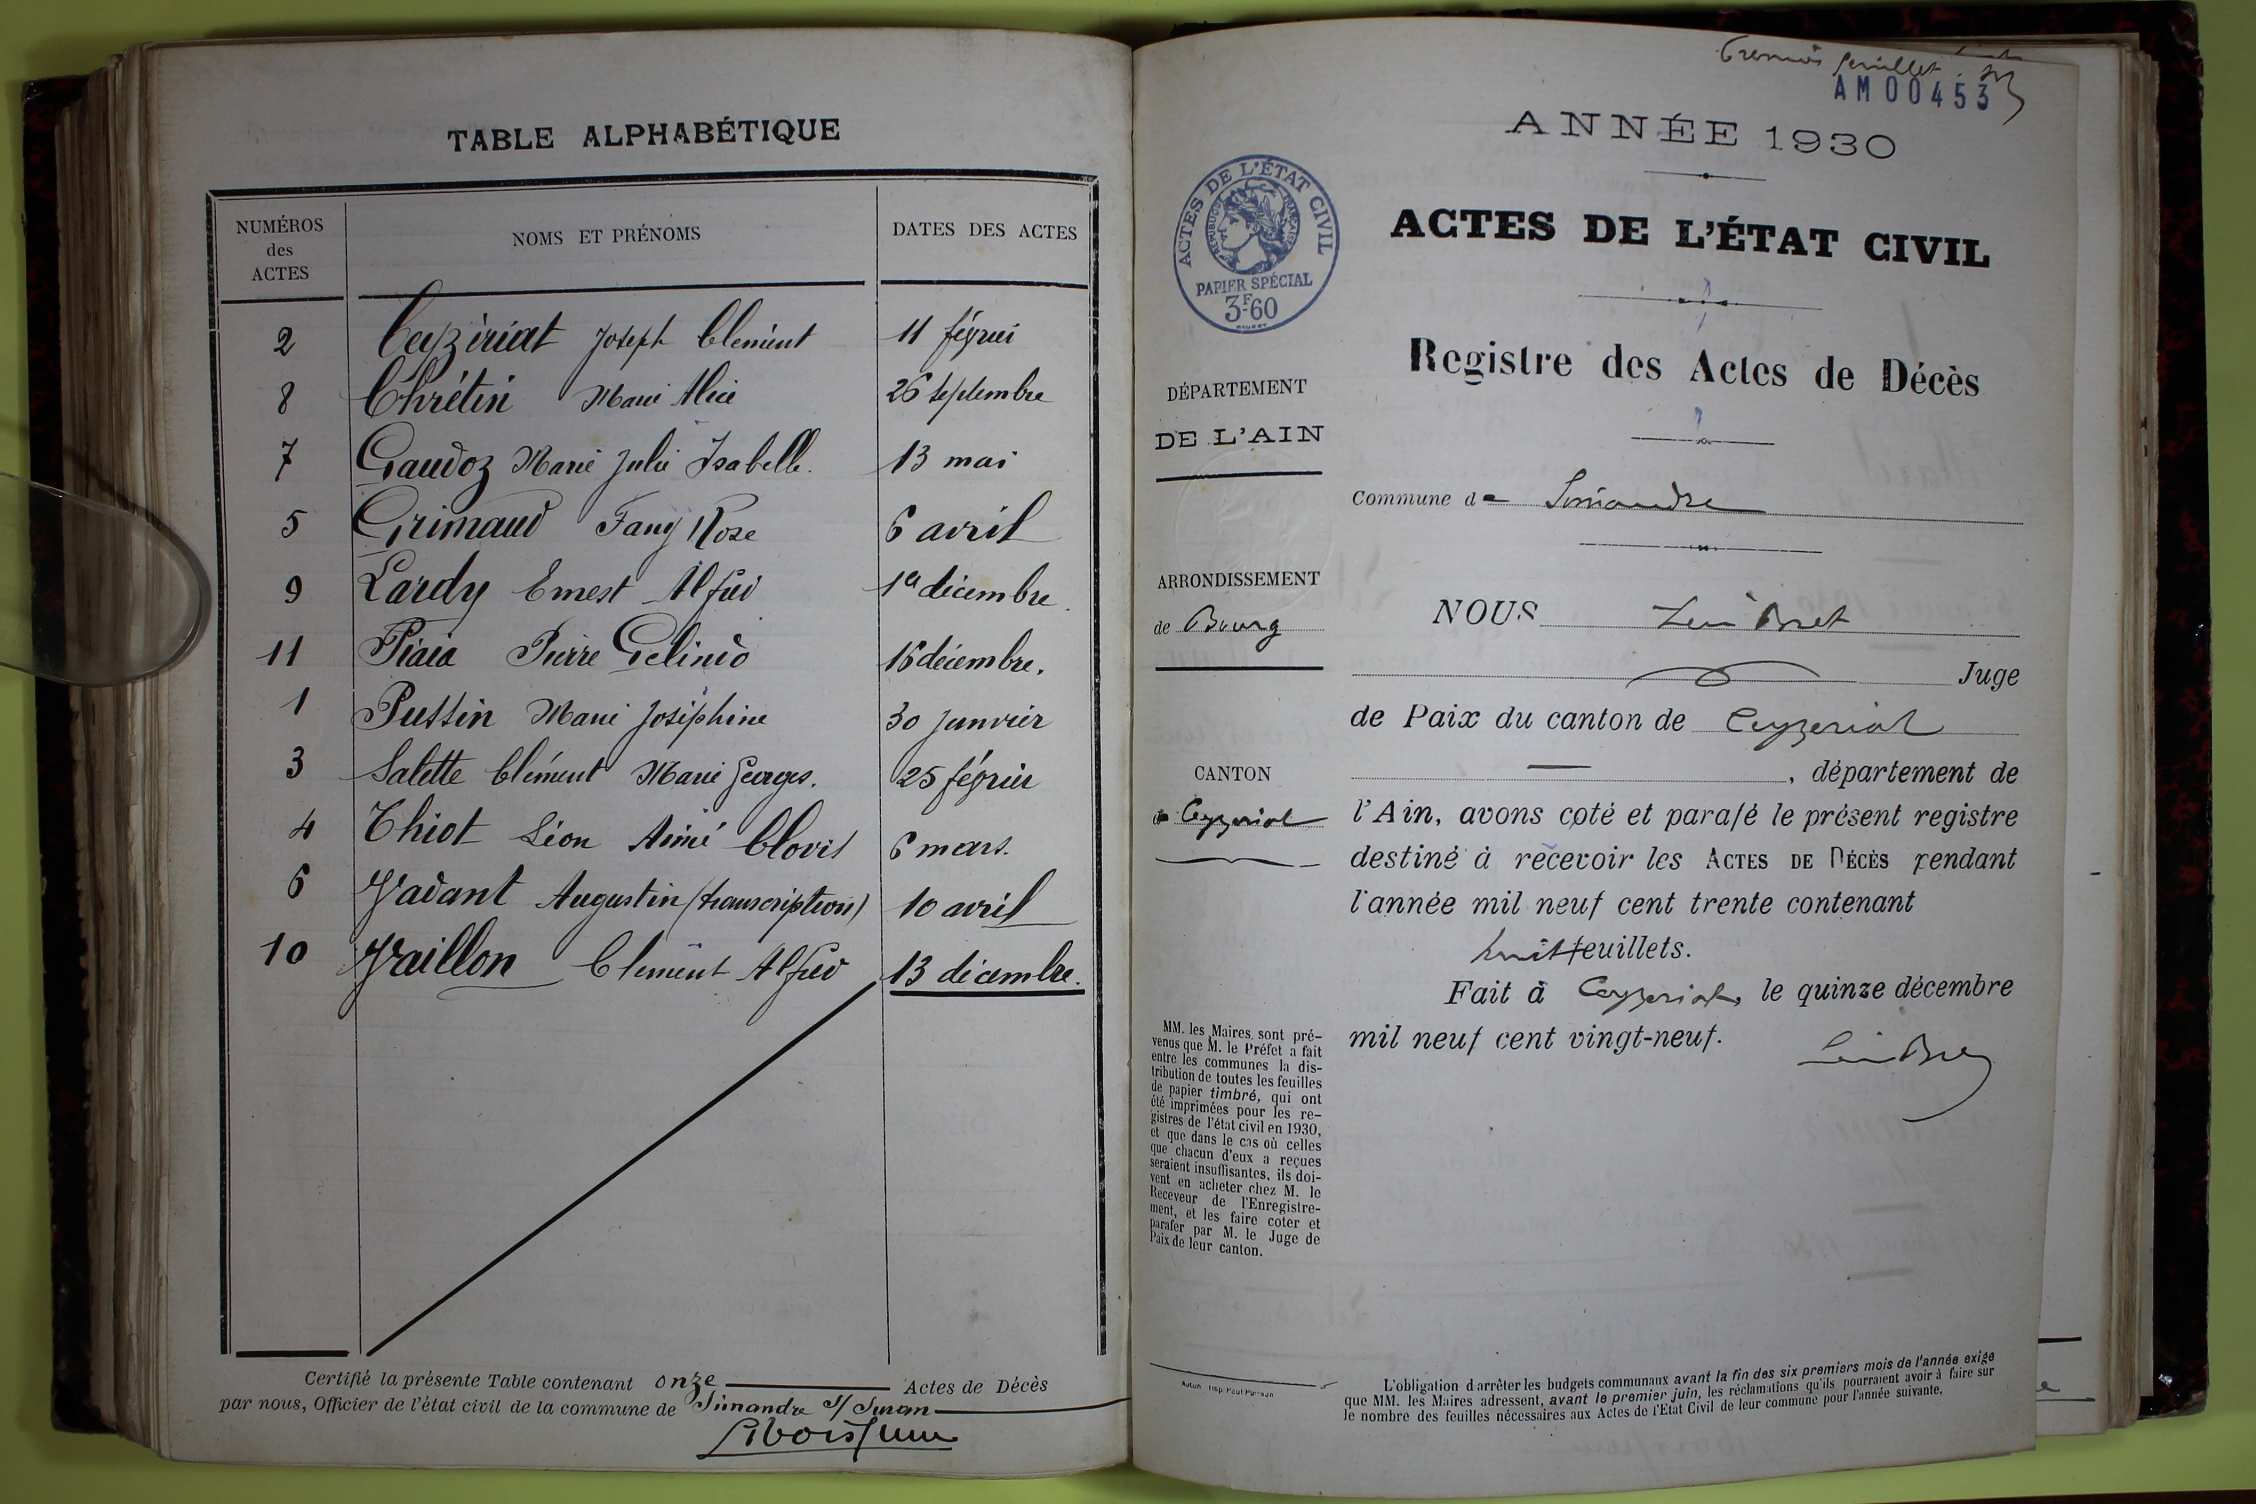 TABLE ALPHABÉTIQUE
NUMÉROS
des
ACTES
NOMS ET PRÉNOMS
DATES DES ACTES
2 Ceyzériat Joseph Clément 11 février
8 Chrétin Marie Alice 26 septembre
7 Gaudoz Marie Julie Isabelle. 13 mai
5 Grimaud Fany Rose 6 avril
9 Lardy Ernest Alfred 1er décembre.
11 Piaia Pierre Gelindo 16 décembre.
1 Pussin Marie Joséphine 30 janvier
3 Salette Clément Marie Georges. 25 février
4 Thiot Léon Aimé Clovis 6 mars.
6 Vadant Augustin (transcription) 10 avril
10 Vaillon Clément Alfred 13 décembre.
Certifié la présente Table contenant onze Actes de Décès
par nous, Officier de l'état civil de la commune de Simandre s/ Suran
Premier feuillet.
AM00453
ANNÉE 1930
ACTES DE L'ÉTAT CIVIL
RÉPUBLIQUE FRANÇAISE
PAPIER SPÉCIAL
3F60
ACTES DE L'ÉTAT CIVIL
Registre des Actes de Décès
DÉPARTEMENT
DE L'AIN
Commune de Simandre
ARRONDISSEMENT
de Bourg
CANTON
de Ceyzeriat
NOUS
Juge
de Paix du canton de Ceyzeriat
, département de
l'Ain, avons coté et parafé le présent registre
destiné à recevoir les ACTES DE DÉCÈS pendant
l'année mil neuf cent trente contenant
huit feuillets.
Fait à Ceyzeriat, le quinze décembre
mil neuf cent vingt-neuf.
MM. les Maires sont pré-
venus que M. le Préfet a fait
entre les communes la dis-
tribution de toutes les feuilles
de papier timbré, qui ont
été imprimées pour les re-
gistres de l'état civil en 1930,
et que dans le cas où celles
que chacun d'eux a reçues
seraient insuffisantes, ils doi-
vent en acheter chez M. le
Receveur de l'Enregistre-
ment, et les faire coter et
parafer par M. le Juge de
Paix de leur canton.
L'obligation d'arrêter les budgets communaux avant la fin des six premiers mois de l'année exige
que MM. les Maires adressent, avant le premier juin, les réclamations qu'ils pourraient avoir à faire sur
le nombre des feuilles nécessaires aux Actes de l'Etat Civil de leur commune pour l'année suivante.